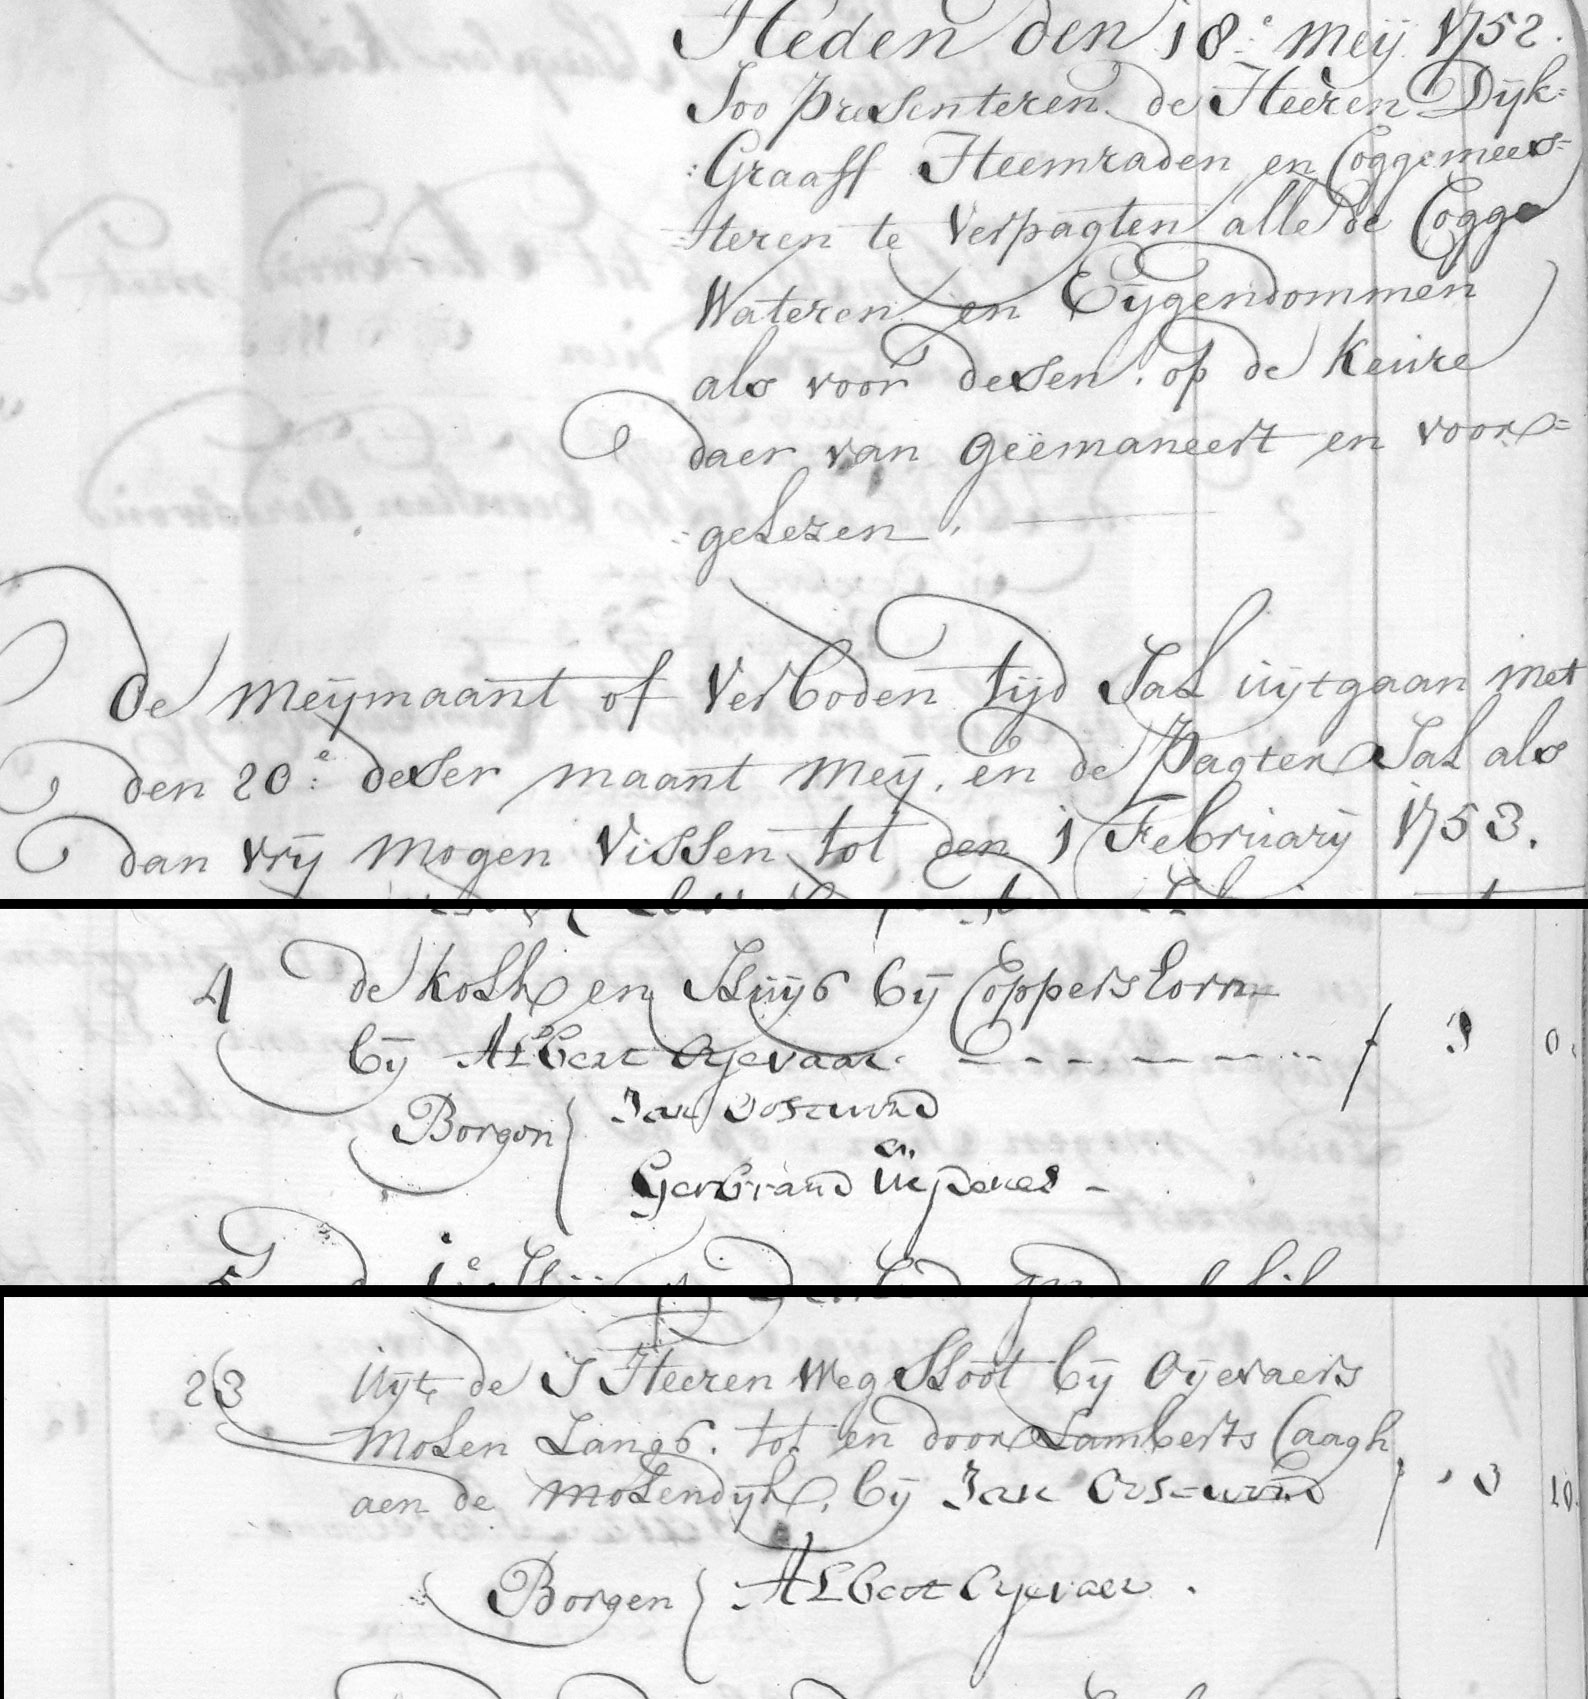 Heden den 18.e Meij 1752.
Soo presenteren de Heeren Dijk=
:Graaff Heemraden en Coggemees=
:steren te Verpagten alle de Cogge
Wateren en Eijgendommen
als voor desen. op de keure
daer van geëmaneert en voor=
:gelezen.
De Meijmaant of Verboden tijd Sal uijtgaan met
den 20:e deser maant Meij, en de Pagter Sal als
dan vrij Mogen Vissen tot den 1 February 1753.
4 de kolk en Sluijs bij Opperslorn
bij Albert Oijevaar. f 3 0.
Borgen { Jan Oostwoud
en
Gerbrand
23 Uijt de S Heeren Weg Sloot bij Oijevaers
Molen Langs. tot en door Lamberts Caagh
aen de Molendijk, bij Jan Oostwoud f 3 10.
Borgen { Albert Oijevaer.